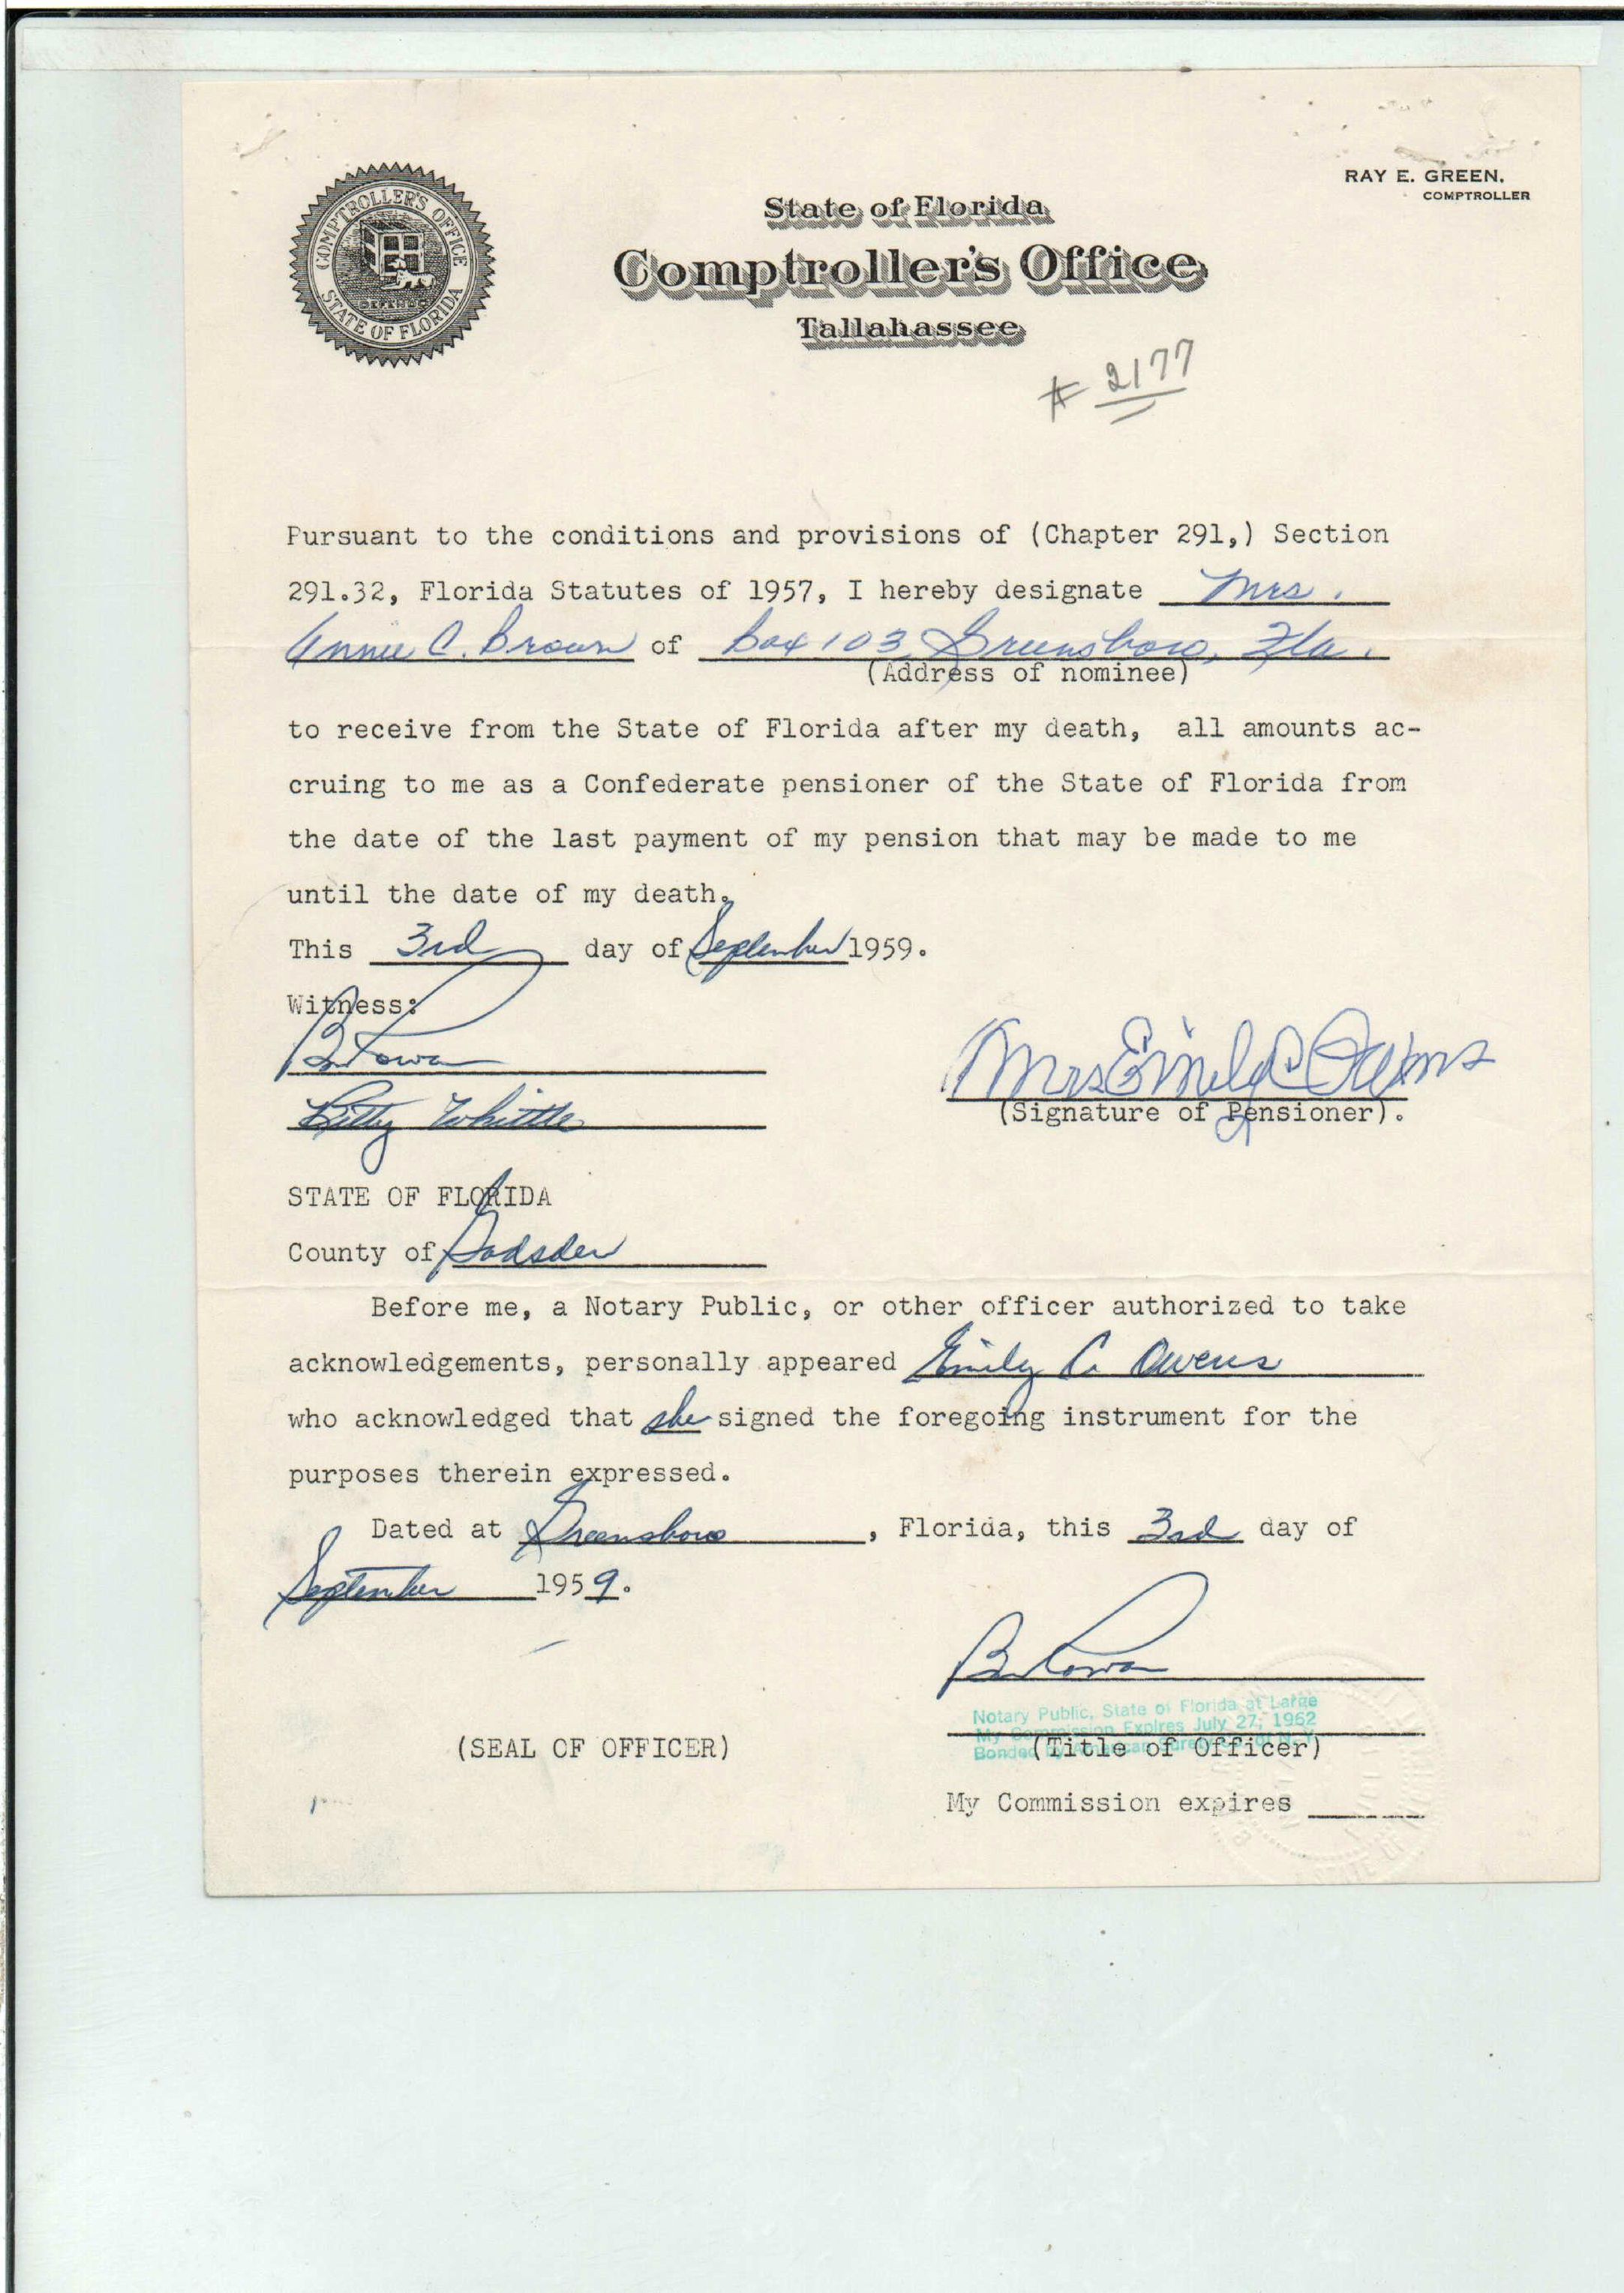 COMPTROLLER'S OFFICE
STATE OF FLORIDA
RAY E. GREEN,
COMPTROLLER
State of Florida
Comptroller's Office
Tallahassee
# 2177
Pursuant to the conditions and provisions of (Chapter 291,) Section
291.32, Florida Statutes of 1957, I hereby designate Mrs.
Annie C. Brown of Box 103, Greensboro, Fla.
(Address of nominee)
to receive from the State of Florida after my death, all amounts ac-
cruing to me as a Confederate pensioner of the State of Florida from
the date of the last payment of my pension that may be made to me
until the date of my death.
This 3rd day of September 1959.
Witness:
Mrs Emily C Owens
Whittle
(Signature of Pensioner).
STATE OF FLORIDA
County of Gadsden
Before me, a Notary Public, or other officer authorized to take
acknowledgements, personally appeared Emily C. Owens
who acknowledged that she signed the foregoing instrument for the
purposes therein expressed.
Dated at Greensboro, Florida, this 3rd day of
September 1959.
Notary Public, State of Florida at Large
My Commission Expires July 27, 1962
Bonded by American Surety
(SEAL OF OFFICER) (Title of Officer)
My Commission expires